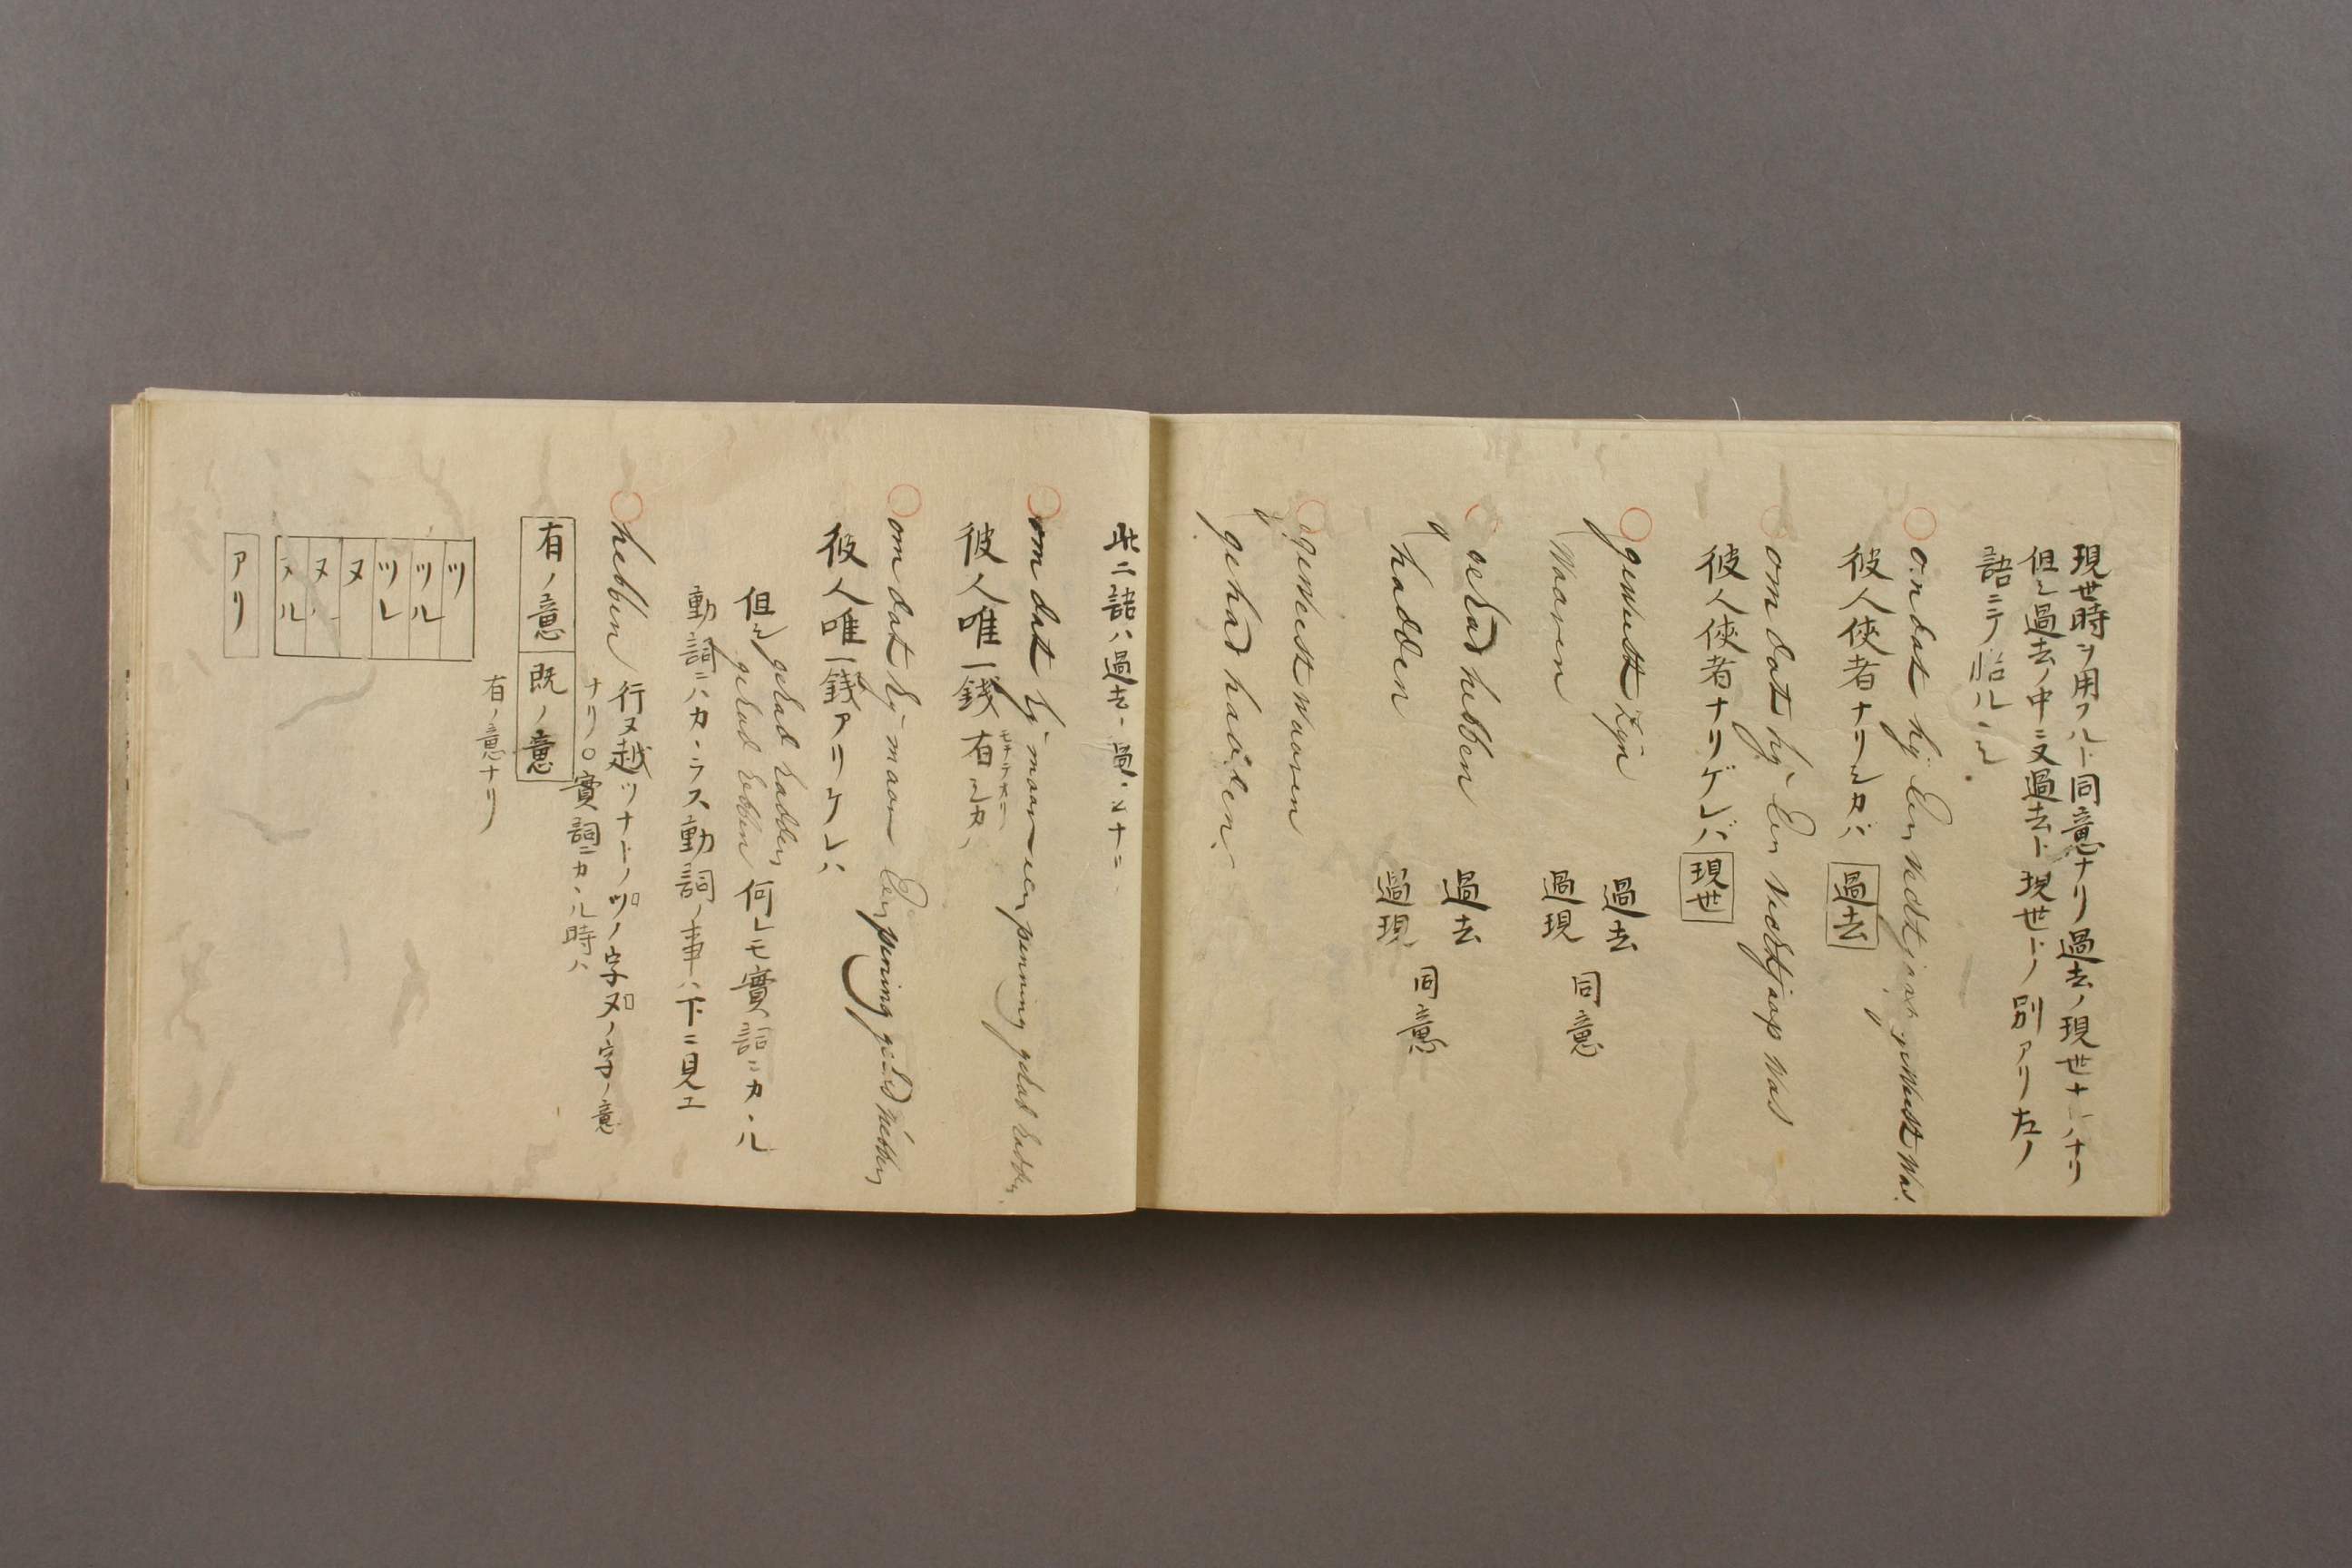 現世時ヲ用フルト同意ナリ過去ノ現世ナ ノナリ
但シ過去ノ中ニ又過去ト現世トノ別アリ左ノ
語ニテ 知ルヘシ
om dat hij een vechtjap geweest was.
彼人俠者ナリシカバ 過去
om dat hij een vechtjap was
彼人俠者ナリゲレバ 現世
geweest zijn 過去
waaren 過現
同意
gehad hebben 過去
hadden 過現
同意
geweest waaren
gehad hadden.
此二語ハ過去ノ過
om dat hij maar een penning gehad hadden
彼人唯一錢有シカ
モチテオリ
om dat hij maar een pening gehad hebben
彼人唯一錢アリケレハ
但シ gehad hadden
gehad hebben 何レモ實詞ニカヽル
動詞ニハカヽラス動詞ノ事ハ下ニ見エ
hebben 行ヌ越ツナトノツノ字ヌノ字ノ意
ナリ○實詞ニカヽル時ハ
有ノ意 既ノ意
有ノ意ナリ
ツ
ツル
ツレ
ヌ
ヌ
ヌル
アリ